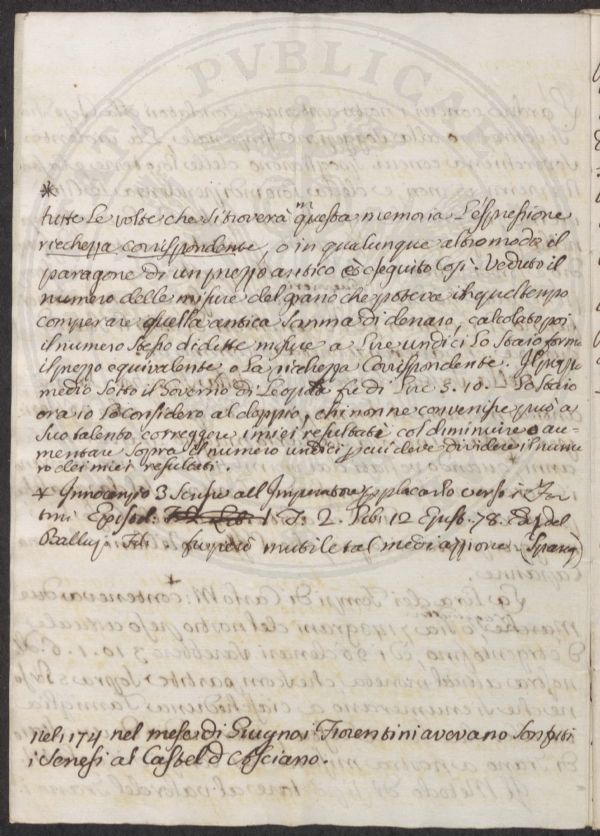 PVBLICA
*
tutte Le volte che si troverà in questa memoria L'espressione
ricchezza corrispondente, o in qualunque altro modo il
paragone di un prezzo antico è eseguito Così. Veduto il
numero delle misure del grano che poteva in quel tempo
comperare quella antica somma di denaro, calcolato poi
il numero stesso di dette misure a Lire undici Lo staio forma
il prezzo equivalente o La ricchezza Corrispondente. Il prezzo
medio sotto il Governo di Leopoldo fu di Lire 5. 10. Lo staio
ora io Lo considero al doppio, chi non ne convenisse può a
suo talento correggere i miei resultati col diminuire o au-
mentare sopra il numero undici per cui deve dividere il nume
ro dei miei resultati.
* Innocenzio 3 scrisse all Imperatore p placarlo verso i
Epistol: T. 2. Lib. 12 Epist. 78. del
Baluzi fu però inutile tal mediazione
nel 1174 nel mese di Giugno i Fiorentini avevano
i Senesi al Castel d